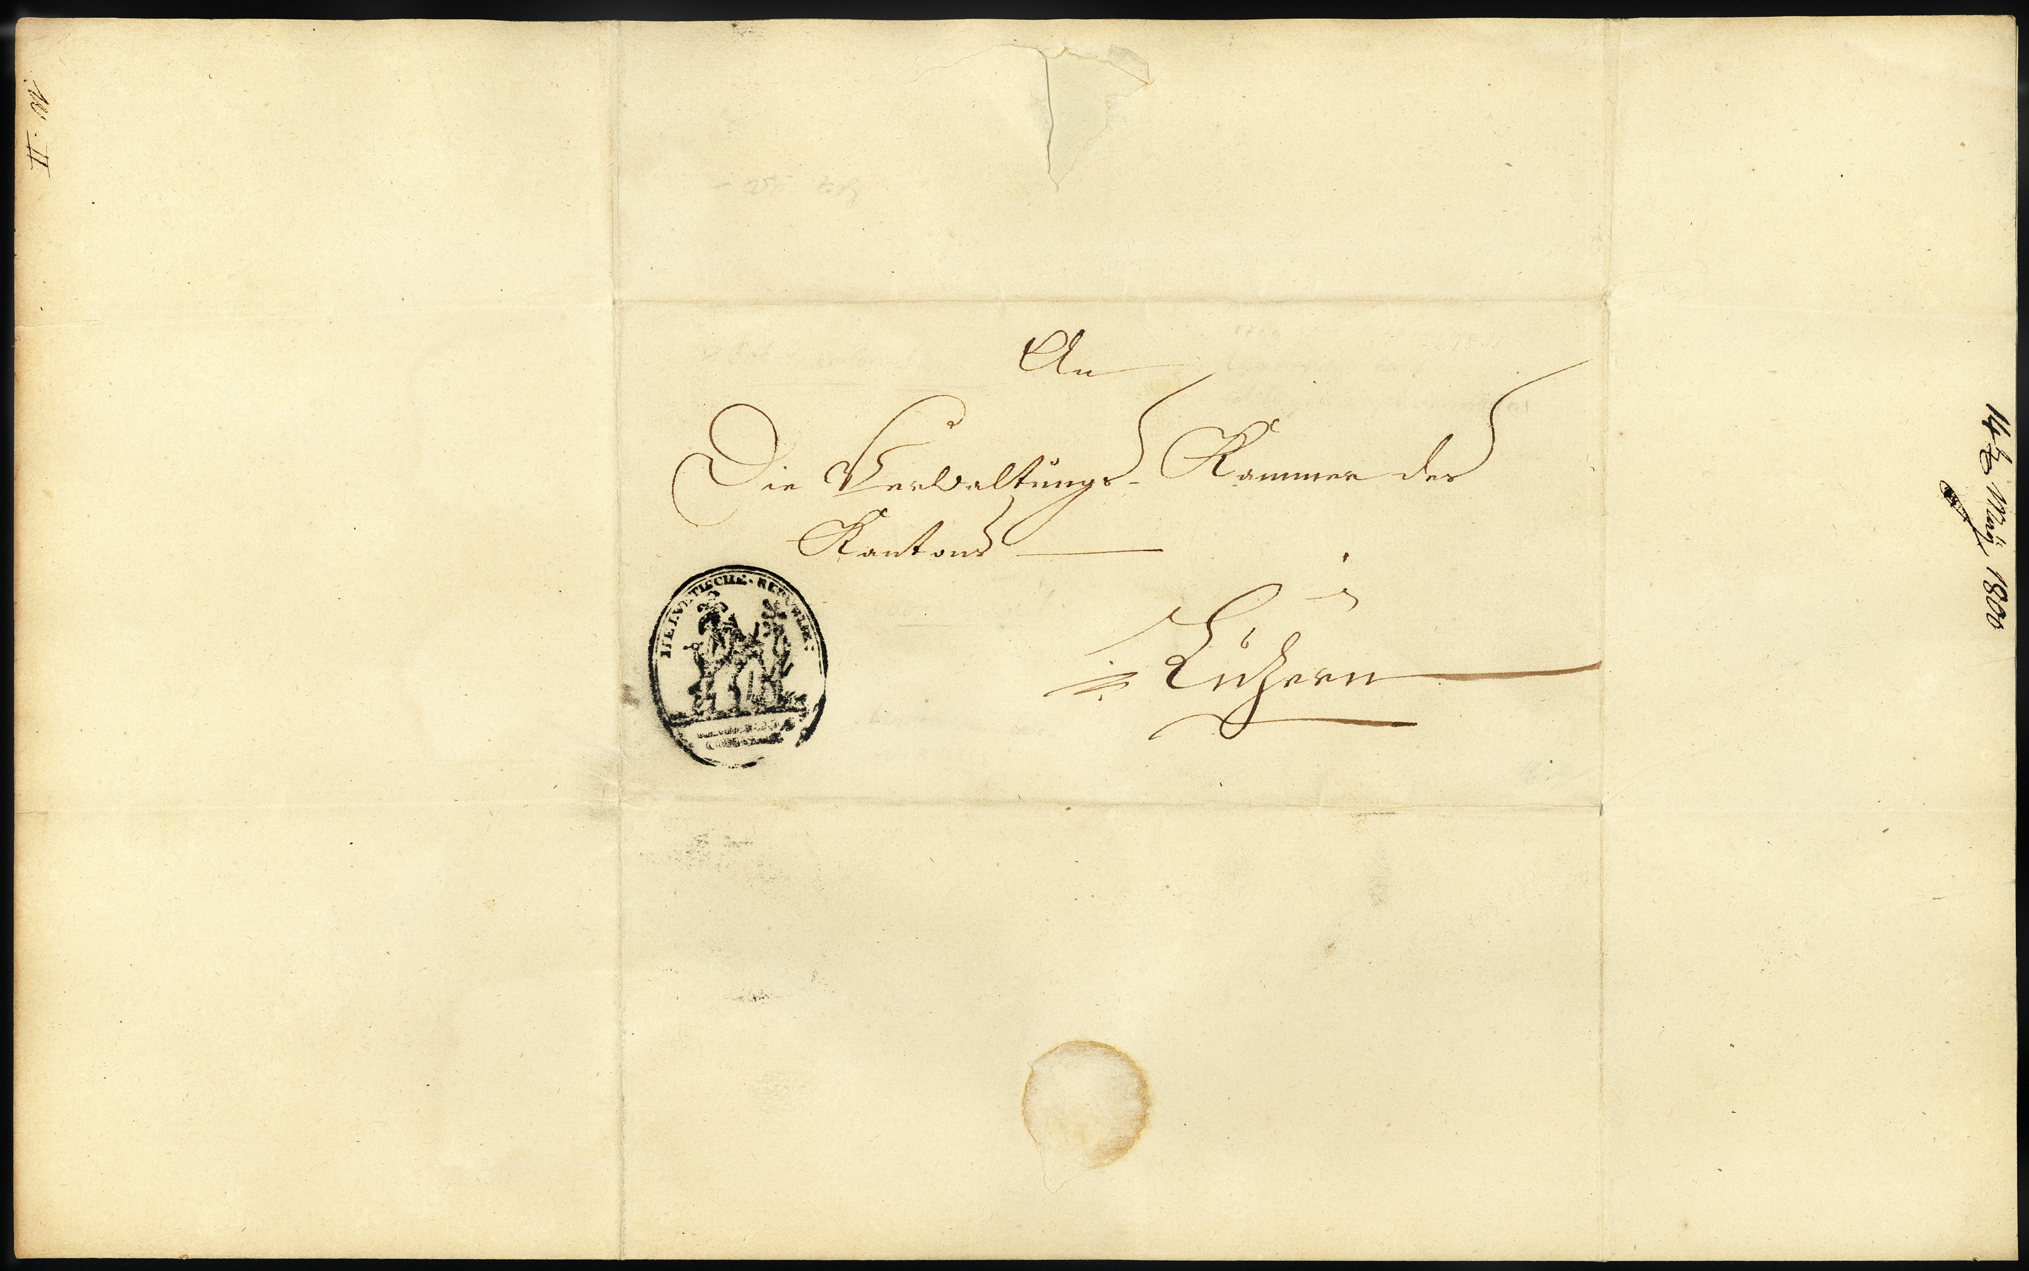 An
Die Verwaltungs-Kammer des
Kantons
Luzern
HELVETISCHE·REPUBLIK
14ten März 1800
II